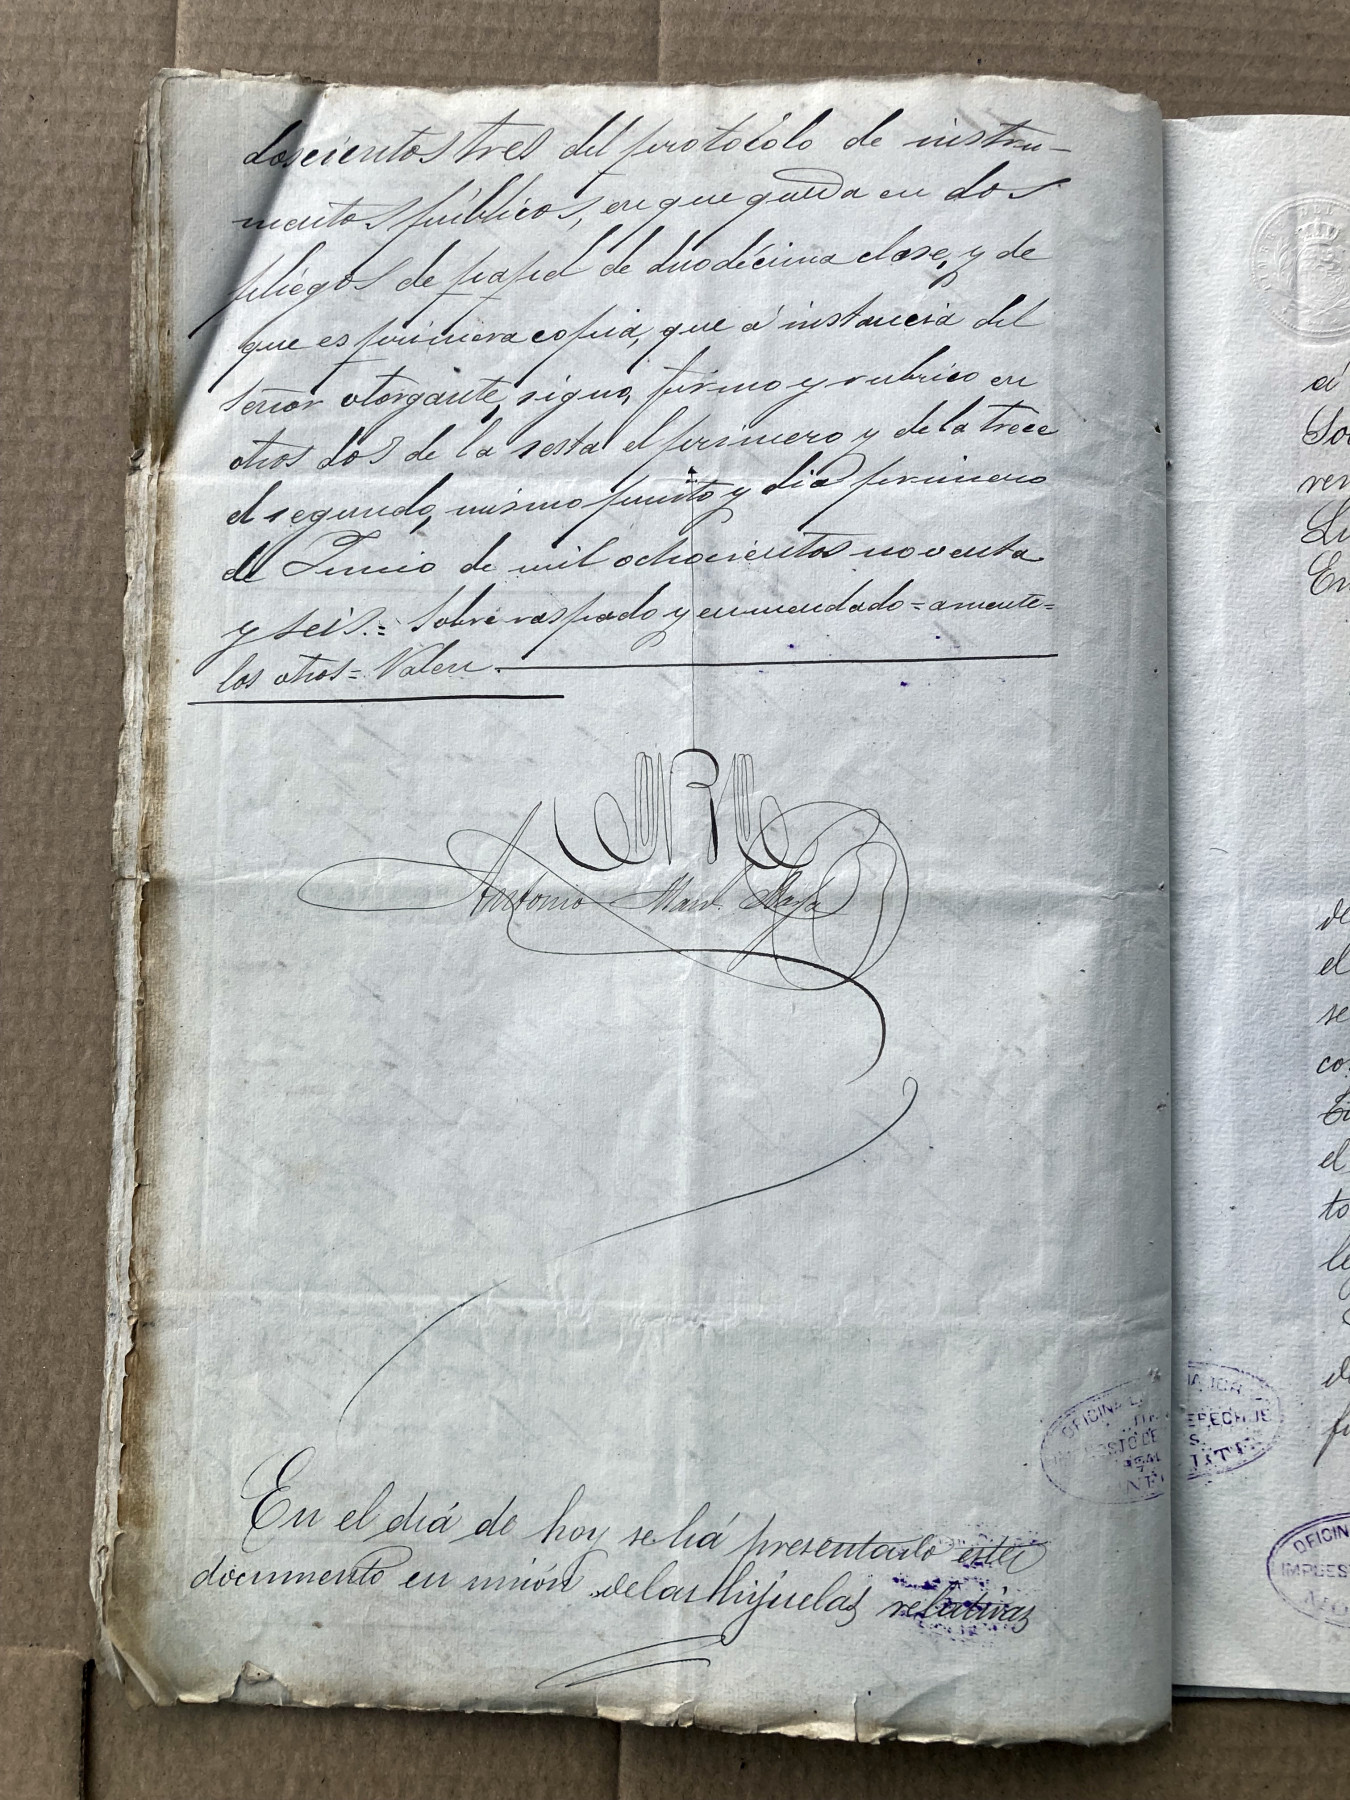 doscientos tres del protocólo de instru-
mentos públicos, en que queda en dos
pliegos de papel de duodécima clase, y de
que es primera copia, que á instancia del
Señor otorgante, signo, firmo y rubrico en
otros dos de la sesta el primero y de la trece
el segundo, mismo punto y dia primero
de Junio de mil ochocientos noventa
y seis.= Sobre raspado y enmendado=amente=
los otros= Valen.
Antonio
En el diá de hoy se há presentado este
documento en unión de las hijuelas relativas
OFICINA
DERECHOS
á
ver
de
el
se
el
to
OFICIN
IMPUES